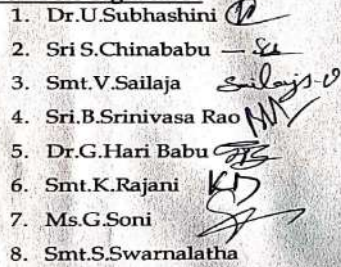 1. Dr.U.Subhashini
2. Sri S.Chinababu
3. Smt.V.Sailaja Sailaja.V
4. Sri.B.Srinivasa Rao
5. Dr.G.Hari Babu
6. Smt.K.Rajani
7. Ms.G.Soni
8. Smt.S.Swarnalatha